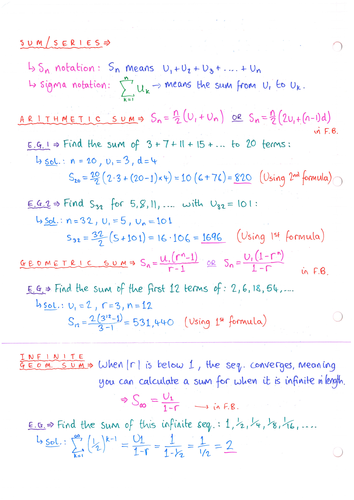 SUM/SERIES⇒
↳ Sn notation: Sn means U₁+U₂+U₃+....+Un
↳ Sigma notation: ⁿ∑ₖ₌₁ Uk → means the sum from U₁ to Uk.
ARITHMETIC SUM⇒ Sn=n/2(U₁+Un) OR Sn=n/2(2U₁+(n-1)d)
in F.B.
E.G.1⇒ Find the sum of 3+7+11+15+... to 20 terms:
↳ Sol.: n=20, U₁=3, d=4
S₂₀=20/2(2·3+(20-1)×4)=10(6+76)=820 (Using 2nd formula)
E.G.2⇒ Find S₃₂ for 5,8,11,.... with U₃₂=101:
↳ Sol.: n=32, U₁=5, Un=101
S₃₂=32/2(5+101)=16·106=1696 (Using 1st formula)
GEOMETRIC SUM⇒ Sn=U₁(rⁿ-1)/r-1 OR Sn=U₁(1-rⁿ)/1-r in F.B.
E.G.⇒ Find the sum of the first 12 terms of: 2,6,18,54,....
↳ Sol.: U₁=2, r=3, n=12
Sn=2(3¹²-1)/3-1=531,440 (Using 1st formula)
INFINITE
GEOM SUM⇒ When |r| is below 1, the seq. converges, meaning
you can calculate a sum for when it is infinite in length.
⇒ S∞=U₁/1-r → in F.B.
E.G.⇒ Find the sum of this infinite seq.: 1,1/2,1/4,1/8,1/16,....
↳ Sol.: ∞∑ₖ₌₁ (1/2)ᵏ⁻¹=U₁/1-r=1/1-1/2=1/1/2=2